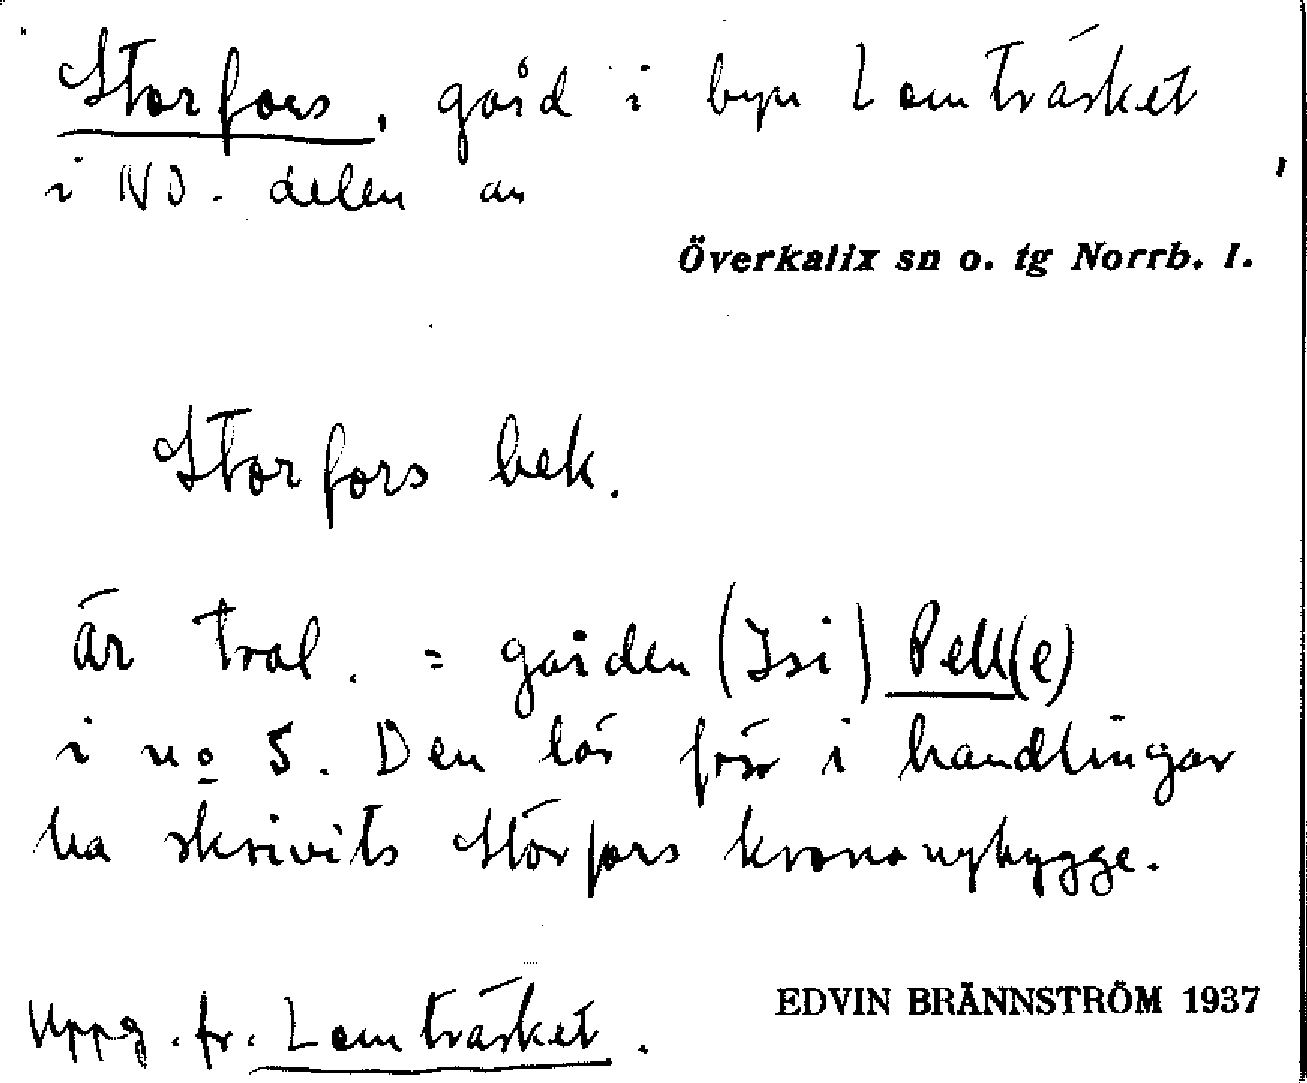 Storfors, gård i byn Lomträsket
i NO. delen av
Överkalix sn o. tg Norrb. l.
Storfors bek.
är tral. = gården (Isi) Pell(e)
i no 5. Den lär förr i handlingar
ha skrivits Störfors krononybygge.
Uppg. fr. Lomträsket.
EDVIN BRÄNNSTRÖM 1937